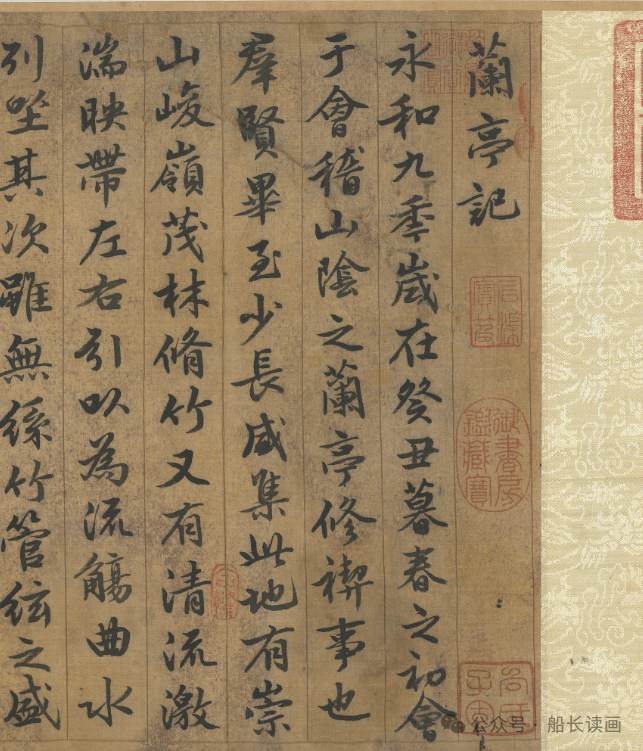 蘭亭記
永和九秊歲在癸丑暮春之初會
于會稽山陰之蘭亭修禊事也
羣賢畢至少長咸集此地有崇
山峻嶺茂林脩竹又有清流激
湍映帶左右引以為流觴曲水
列坐其次雖無絲竹管絃之盛
石渠寶笈
御書房鑑藏寶
公众号 · 船长读画